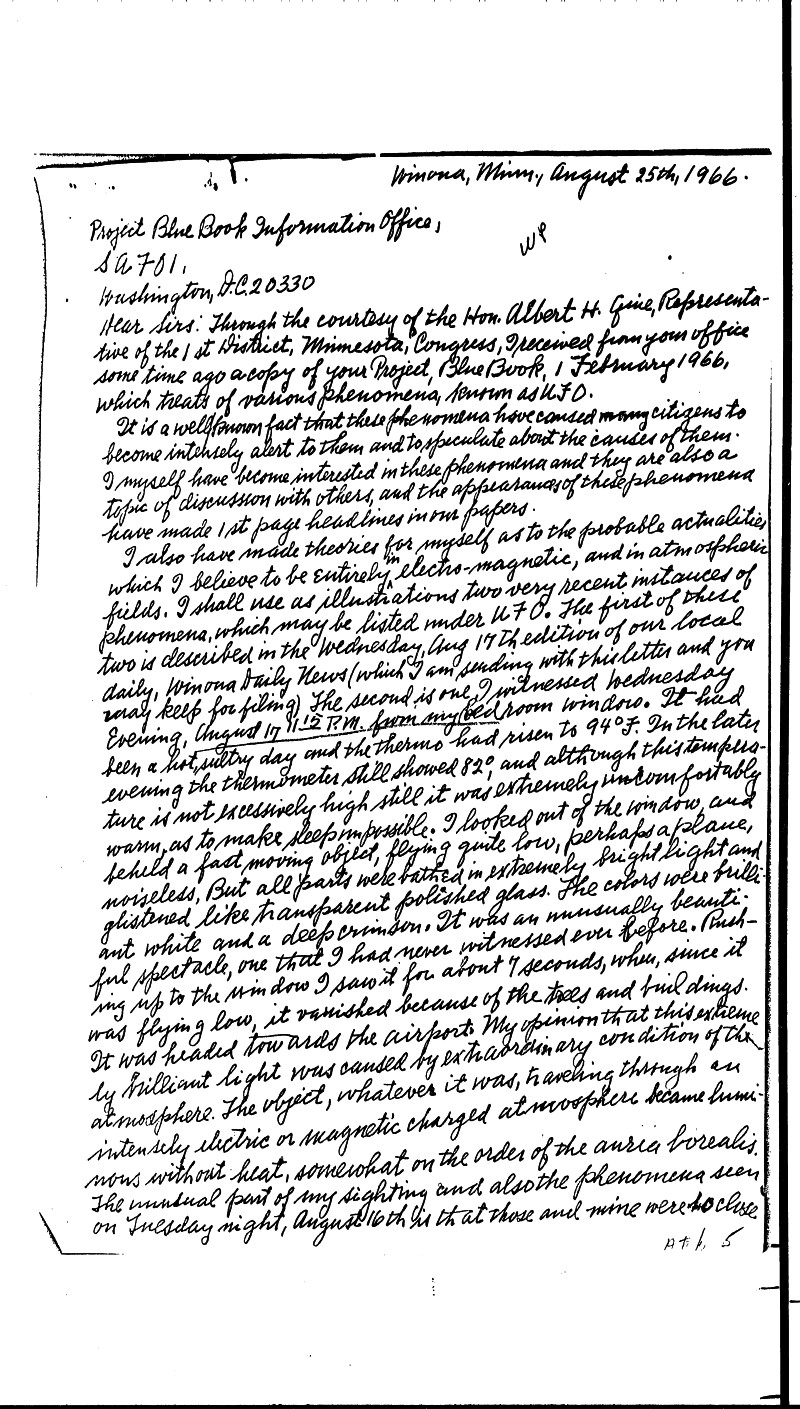 Winona, Minn., August 25th, 1966.
Project Blue Book Information Office,
WP
SA701,
Washington, D.C. 20330
Dear Sirs: Through the courtesy of the Hon. Albert H. Quie, Representa-
tive of the 1st District, Minnesota, Congress, I received from your office
some time ago a copy of your Project, Blue Book, 1 February 1966,
which treats of various phenomena, known as UFO.
It is a well known fact that these phenomena have caused many citizens to
become intensely alert to them and to speculate about the causes of them.
I myself have become interested in these phenomena and they are also a
topic of discussion with others, and the appearances of these phenomena
have made 1st page headlines in our papers.
I also have made theories for myself as to the probable actualities
which I believe to be entirely in electro-magnetic, and in atmospheric
fields. I shall use as illustrations two very recent instances of
phenomena, which may be listed under UFO. The first of these
two is described in the Wednesday, Aug 17th edition of our local
daily, Winona Daily News (which I am sending with this letter and you
may keep for filing) The second is one, I witnessed Wednesday
Evening, August 17 11:15 P.M. from my bedroom window. It had
been a hot, sultry day and the thermo had risen to 94°F. In the later
evening the thermometer still showed 82°, and although this tempera-
ture is not excessively high still it was extremely uncomfortably
warm, as to make sleep impossible. I looked out of the window, and
beheld a fast moving object, flying quite low, perhaps a plane,
noiseless, But all parts were bathed in extremely bright light and
glistened like transparent polished glass. The colors were brilli-
ant white and a deep crimson. It was an unusually beauti-
ful spectacle, one that I had never witnessed ever before. Rush-
ing up to the window I saw it for about 7 seconds, when, since it
was flying low, it vanished because of the trees and buildings.
It was headed towards the airport. My opinion that at this extreme
ly brilliant light was caused by extraordinary condition of the
atmosphere. The object, whatever it was, traveling through an
intensely electric or magnetic charged atmosphere became lumi-
nous without heat, somewhat on the order of the auria borealis.
The unusual part of my sighting and also the phenomena seen
on Tuesday night, August 16th is that those and mine were so close
Atch 5